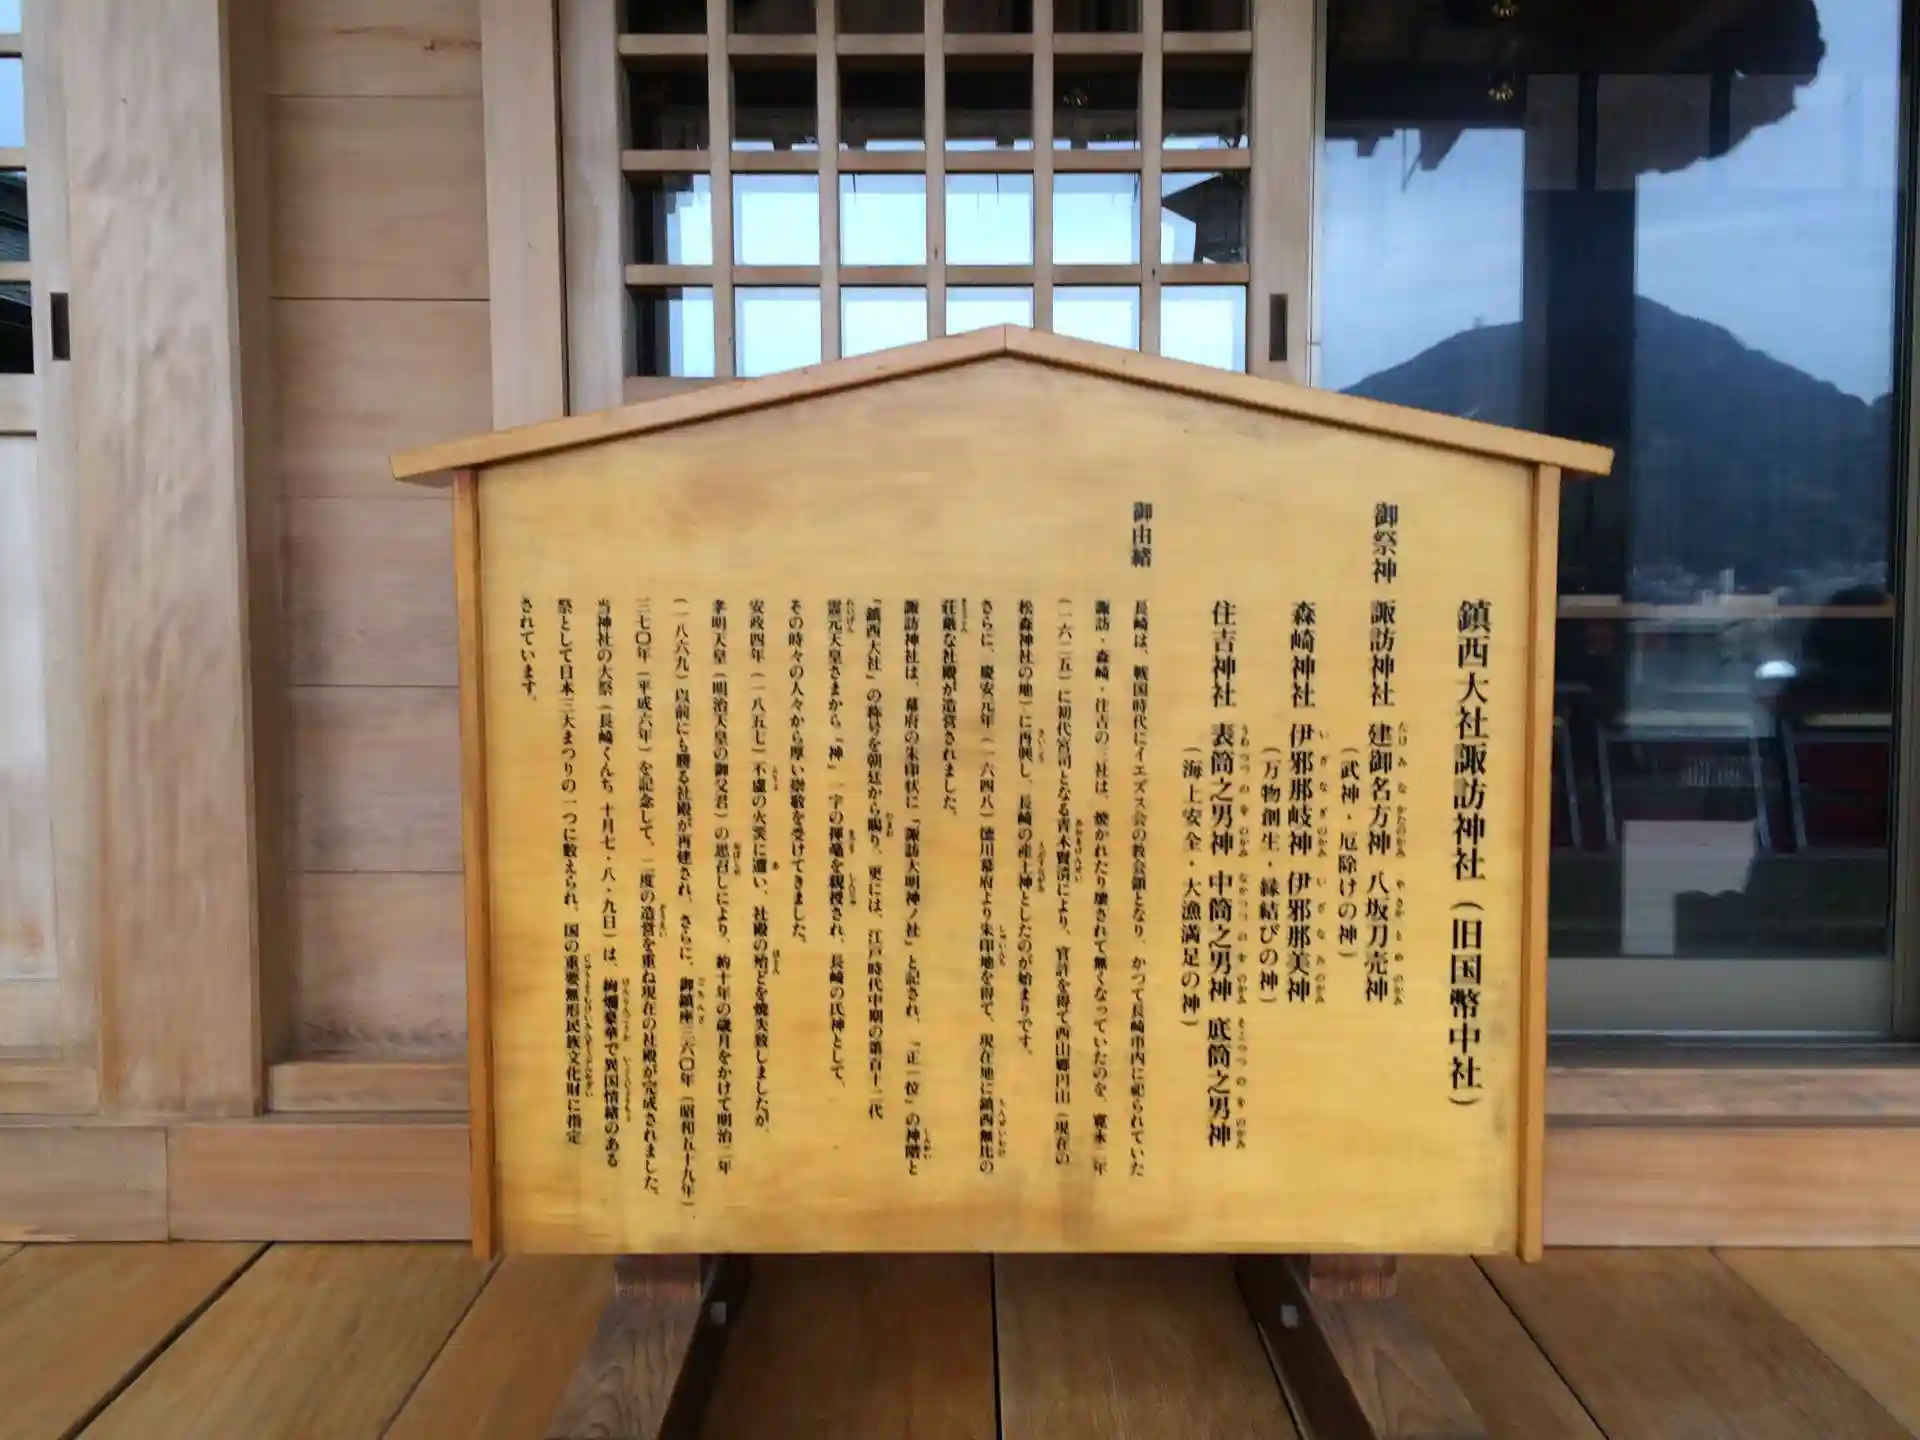 鎮西大社諏訪神社(旧国幣中社)
御祭神 諏訪神社 建御名方神 八坂刀売神
(武神・厄除けの神)
森崎神社 伊邪那岐神 伊邪那美神
(万物創生・縁結びの神)
住吉神社 表筒之男神 中筒之男神 底筒之男神
(海上安全・大漁満足の神)
御由緒
長崎は、戦国時代にイエズス会の教会領となり、かつて長崎市内に祀られていた
諏訪・森崎・住吉の三社は、焼かれたり壊されて無くなっていたのを、寛永二年
(一六二五)に初代宮司となる青木賢清により、官許を得て西山郷円山(現在の
松森神社の地)に再興し、長崎の産土神としたのが始まりです。
さらに、慶安元年(一六四八)徳川幕府より朱印地を得て、現在地に鎮西無比の
荘厳な社殿が造営されました。
諏訪神社は、幕府の朱印状に『諏訪大明神ノ社』と記され、『正一位』の神階と
『鎮西大社』の称号を朝廷から賜り、更には、江戸時代中期の第百十二代
霊元天皇さまから『神』一字の揮毫を親授され、長崎の氏神として、
その時々の人々から厚い崇敬を受けてきました。
安政四年(一八五七)不慮の火災に遭い、社殿の殆どを焼失致しましたが、
孝明天皇(明治天皇の御父君)の思召しにより、約十年の歳月をかけて明治二年
(一八六九)以前にも勝る社殿が再建され、さらに、御鎮座三六〇年(昭和五十九年)、
三七〇年(平成六年)を記念して、二度の造営を重ね現在の社殿が完成されました。
当神社の大祭(長崎くんち 十月七・八・九日)は、絢爛豪華で異国情緒のある
祭として日本三大まつりの一つに数えられ、国の重要無形民族文化財に指定
されています。